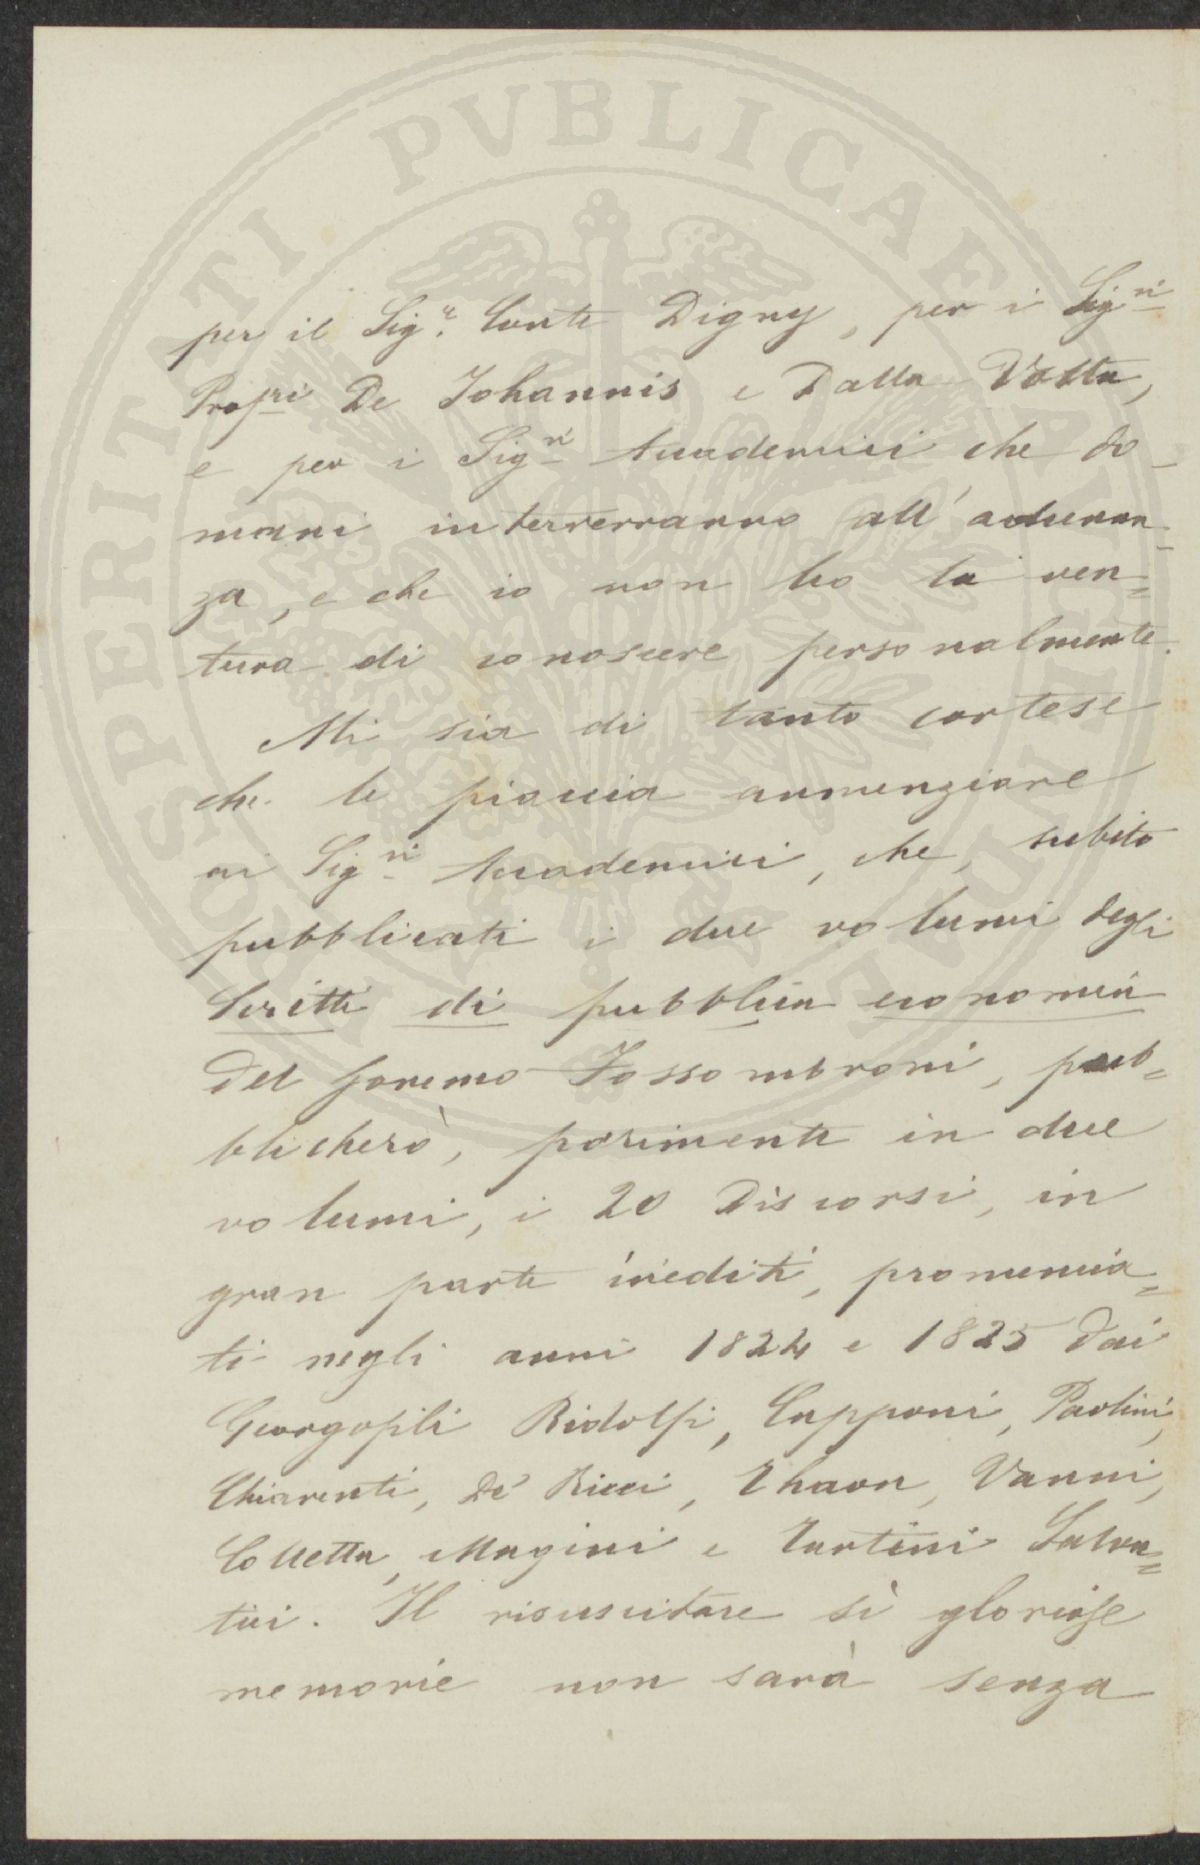 PROSPERITATI PVBLICAE AVGENDAE
per il Sig.r Conte Digny, per i Sig.ri
Prof.ri De Johannis e Dalla Volta,
e per i Sig.ri Accademici che do-
mani interverranno all'adunan-
za, e che io non ho la ven=
tura di conoscere personalmente.
Mi sia di tanto cortese
che le piaccia annunziare
ai Sig.ri Accademici, che, subito
pubblicati i due volumi degli
Scritti di pubblica economia
del sommo Fossombroni, pub=
blicherò, parimente in due
volumi, i 20 Discorsi, in
gran parte inediti, pronuncia=
ti negli anni 1824 e 1825 dai
Georgofili Ridolfi, Capponi, Paolini,
Chiarenti, De' Ricci, Thaon, Vanni,
Colletta, Magini e Tartini Salva=
tici. Il risuscitare sì gloriose
memorie non sarà senza